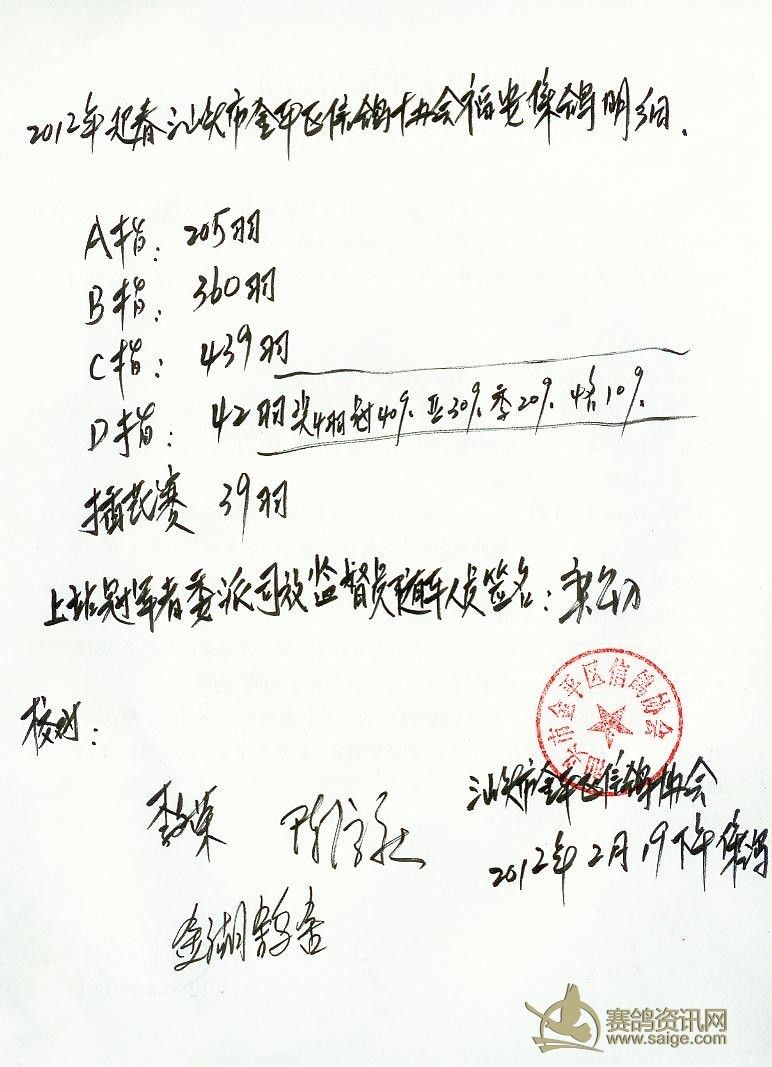 2012年迎春汕头市金平区信鸽协会福安集鸽明细.
A指: 205羽
B指: 360羽
C指: 439羽
D指: 42羽 奖4羽 冠40% 亚30% 季20% 10%
插花赛 39羽
上站冠军者委派司放监督员随车人员签名:
校对:
汕头市金平区信鸽协会
汕头市金平区信鸽协会
2012年2月19下午集鸽
金湖
赛鸽资讯网
www.saige.com